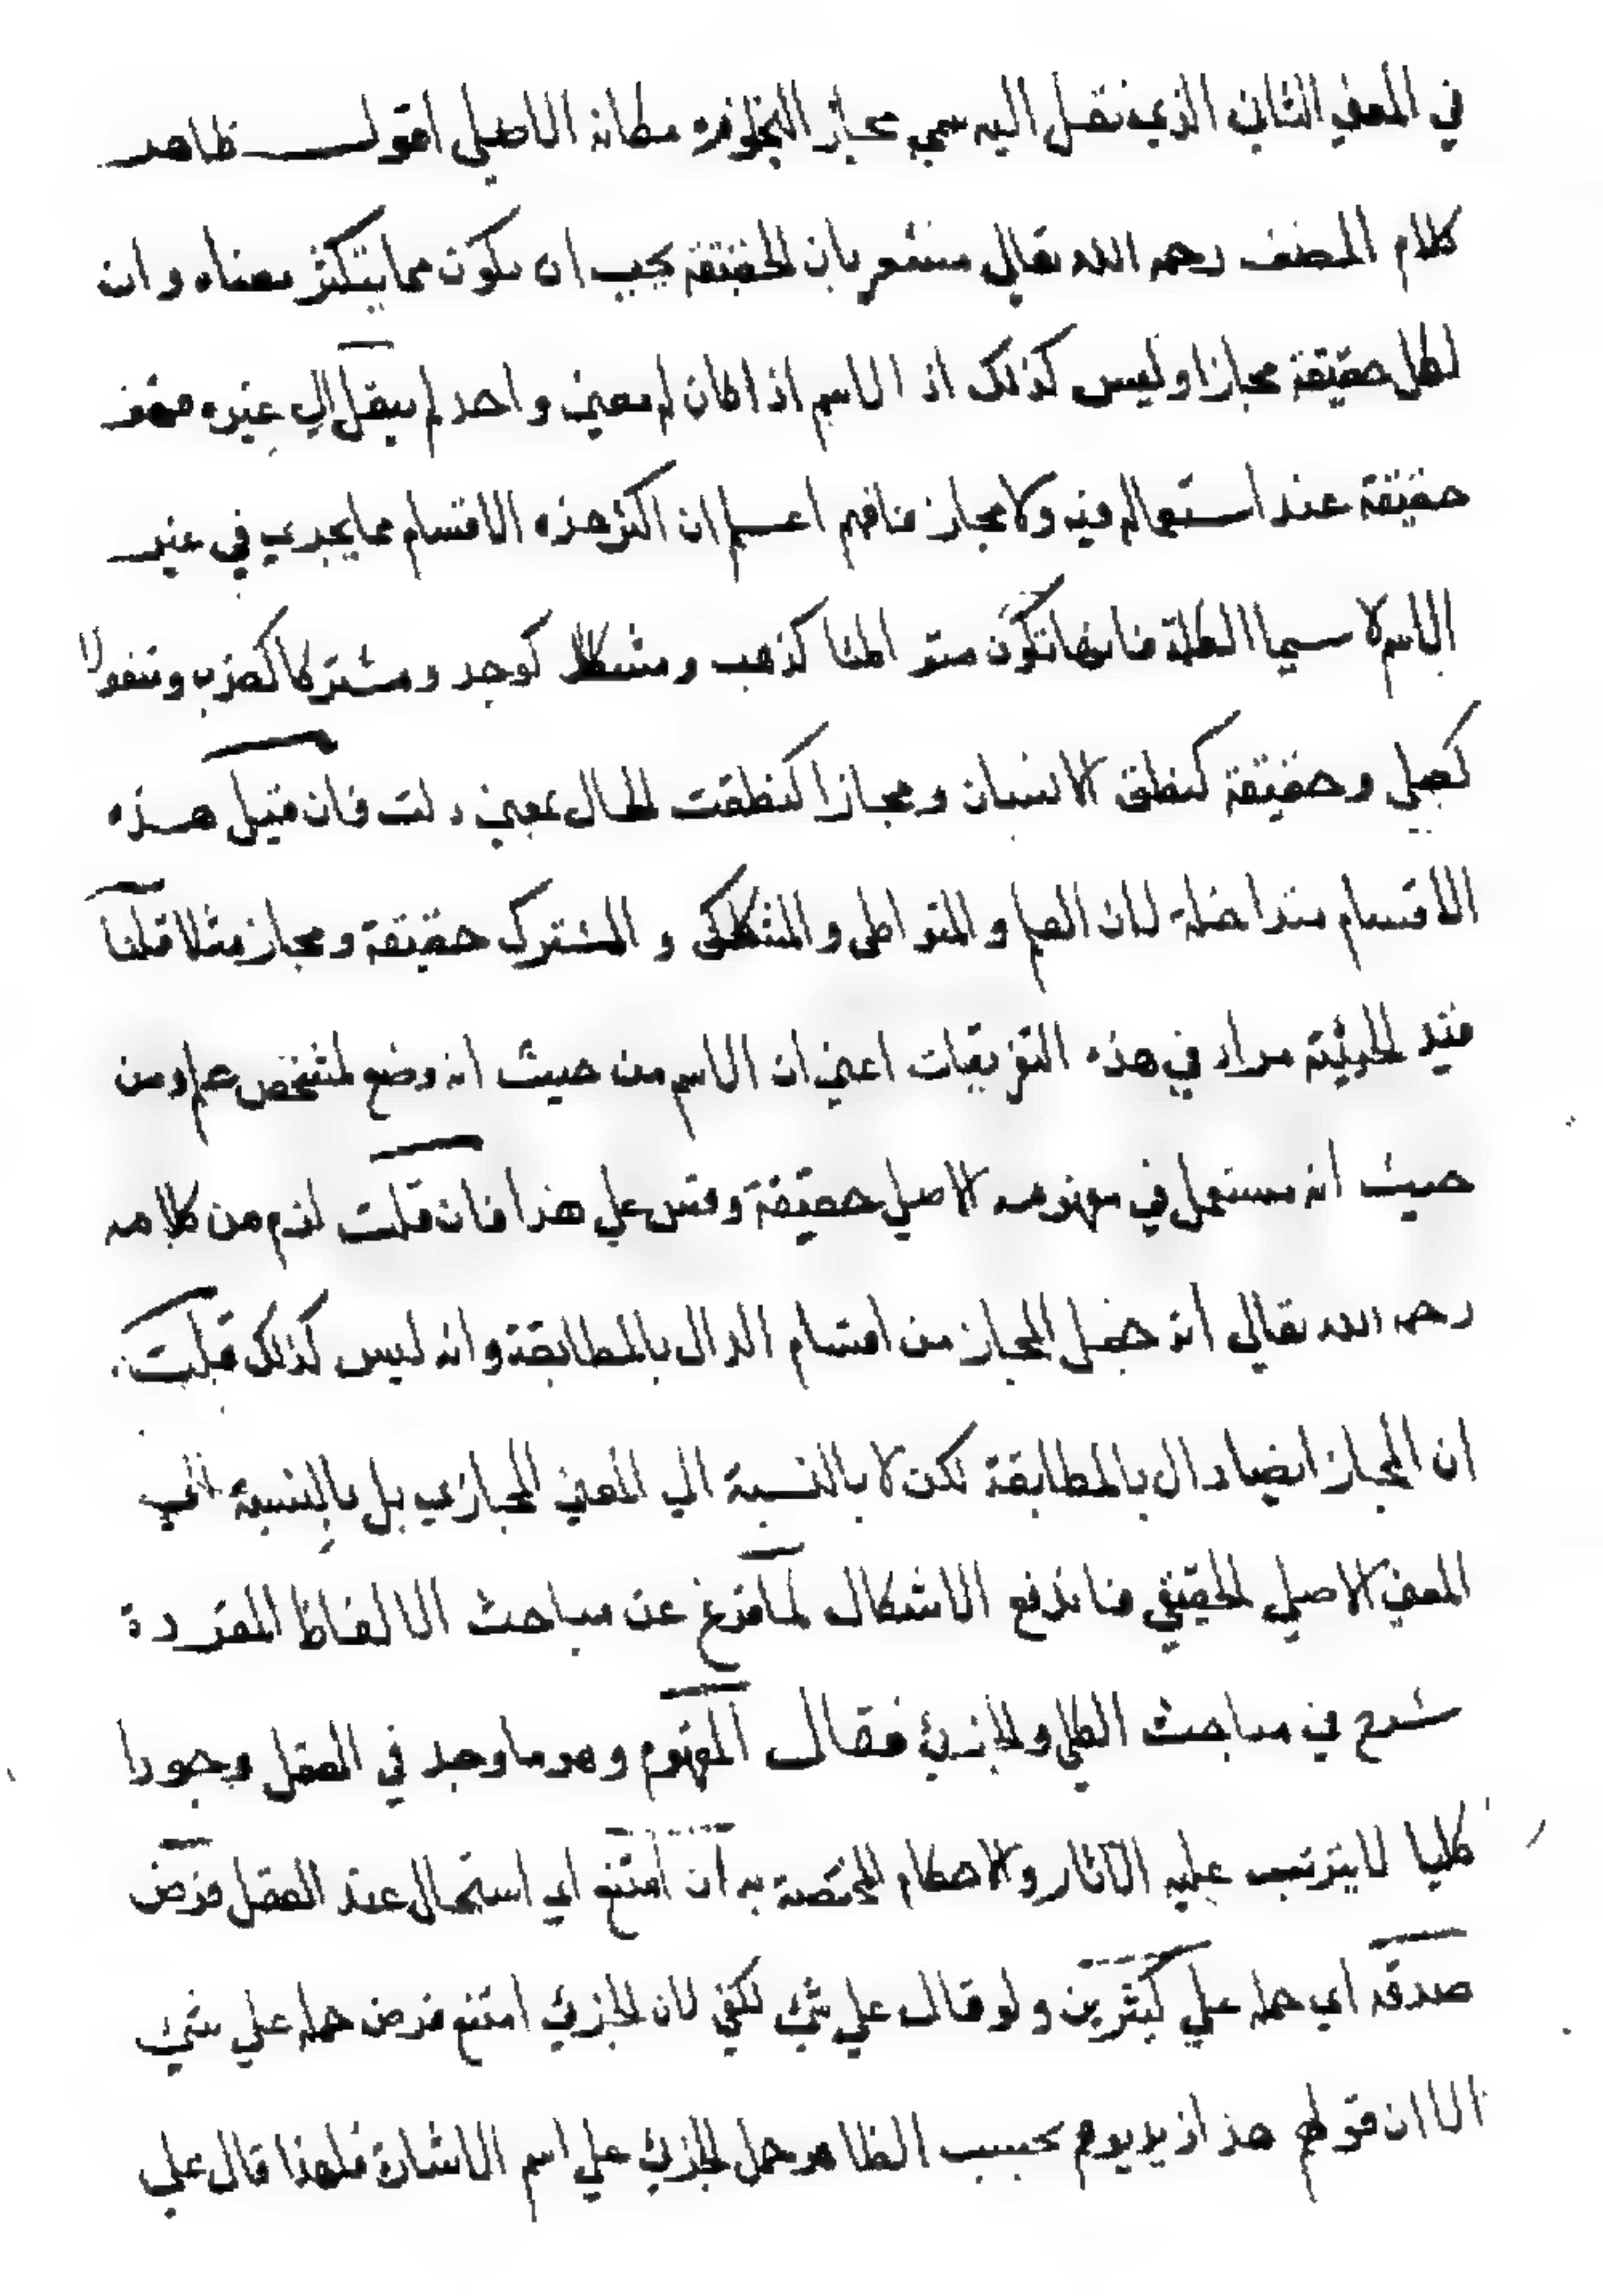 في المعني الثاني الذي نقل اليه سمي مجاز التجاوزه مكانه الاصلي اقول ظاهر
كلام المصنف رحمه الله تعالي مشعر بان الحقيقة يجب ان يكون مما يتكثر معناه وان
لكل حقيقة مجازا وليس كذلك اذ الاسم اذا كان له معني واحد لم ينقل الي غيره فهو
حقيقة عند استعماله فيه ولا مجاز فافهم اعلم ان اكثر هذه الاقسام مما يجري في غير
الاسم لا سيما الكلمة فانها تكون متواطئا كذهب ومشككا كوجد ومشتركا كضرب ومنقولا
كصلي وحقيقة كنطق الانسان ومجازا كنطقت الحال بمعني دلت فان قيل هذه
الاقسام متداخلة لان العلم والمتواطي والمشكك والمشترك حقيقة ومجاز مثلا قلنا
قيد الحيثية مراد في هذه التعريفات اعني ان الاسم من حيث انه وضع لمشخص علم ومن
حيث انه مستعمل في مفهومه الاصلي حقيقة وقس علي هذا فان قلت لزم من كلامه
رحمه الله تعالي انه جعل المجاز من اقسام الدال بالمطابقة وانه ليس كذلك قلت
ان المجاز ايضا دال بالمطابقة لكن لا بالنسبة الي المعني المجازي بل بالنسبة الي
المعني الاصلي الحقيقي فاندفع الاشكال لما فرغ عن مباحث الالفاظ المفردة
شرع في مباحث الكلي والجزئي فقال المفهوم وهو ما وجد في العقل وجودا
كليا لا يترتب عليه الاثار والاحكام المختصة به ان امتنع اي استحال عند العقل فرض
صدقه اي حمله علي كثيرين ولو قال علي شئ لكفي لان الجزئي امتنع فرض حمله علي شئ
الا ان قولهم هذا زيد يوهم بحسب الظاهر حمل الجزئي علي اسم الاشارة فلهذا قال علي